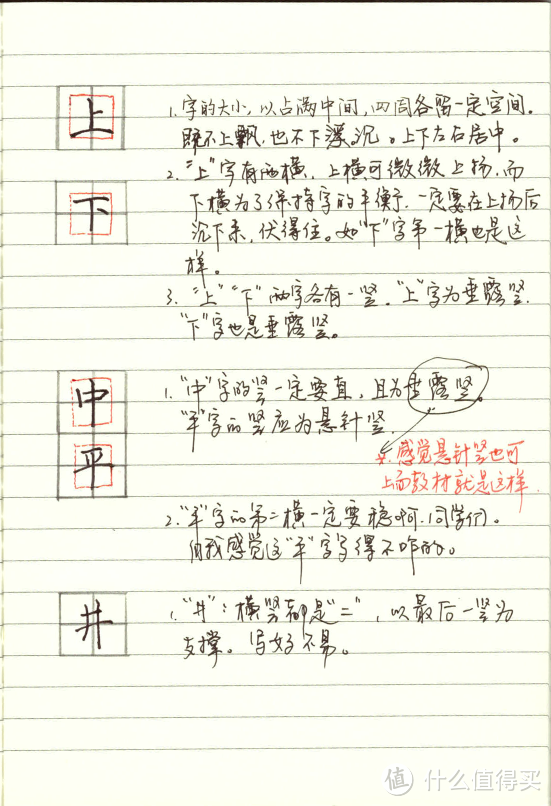 上
1.字的大小,以占满中间,四周各留一定空间.
既不上飘,也不下沉。上下左右居中。
下
2."上"字有两横,上横可微微上扬,而
下横为了保持字的平衡,一定要在上扬后
沉下来,伏得住。如"下"字第一横也是这
样。
3."上""下"两字各有一竖."上"字为垂露竖.
"下"字也是垂露竖。
中
1."中"字的竖一定要直,且为垂露竖。
"平"字的竖应为悬针竖.
平
*.感觉悬针竖也可
上面教材就是这样.
2."平"字的第二横一定要稳啊.同学们。
但我感觉这"平"字写得不咋的。
井
1."井":横竖都是"二",以最后一竖为
支撑。写好不易。
值 什么值得买